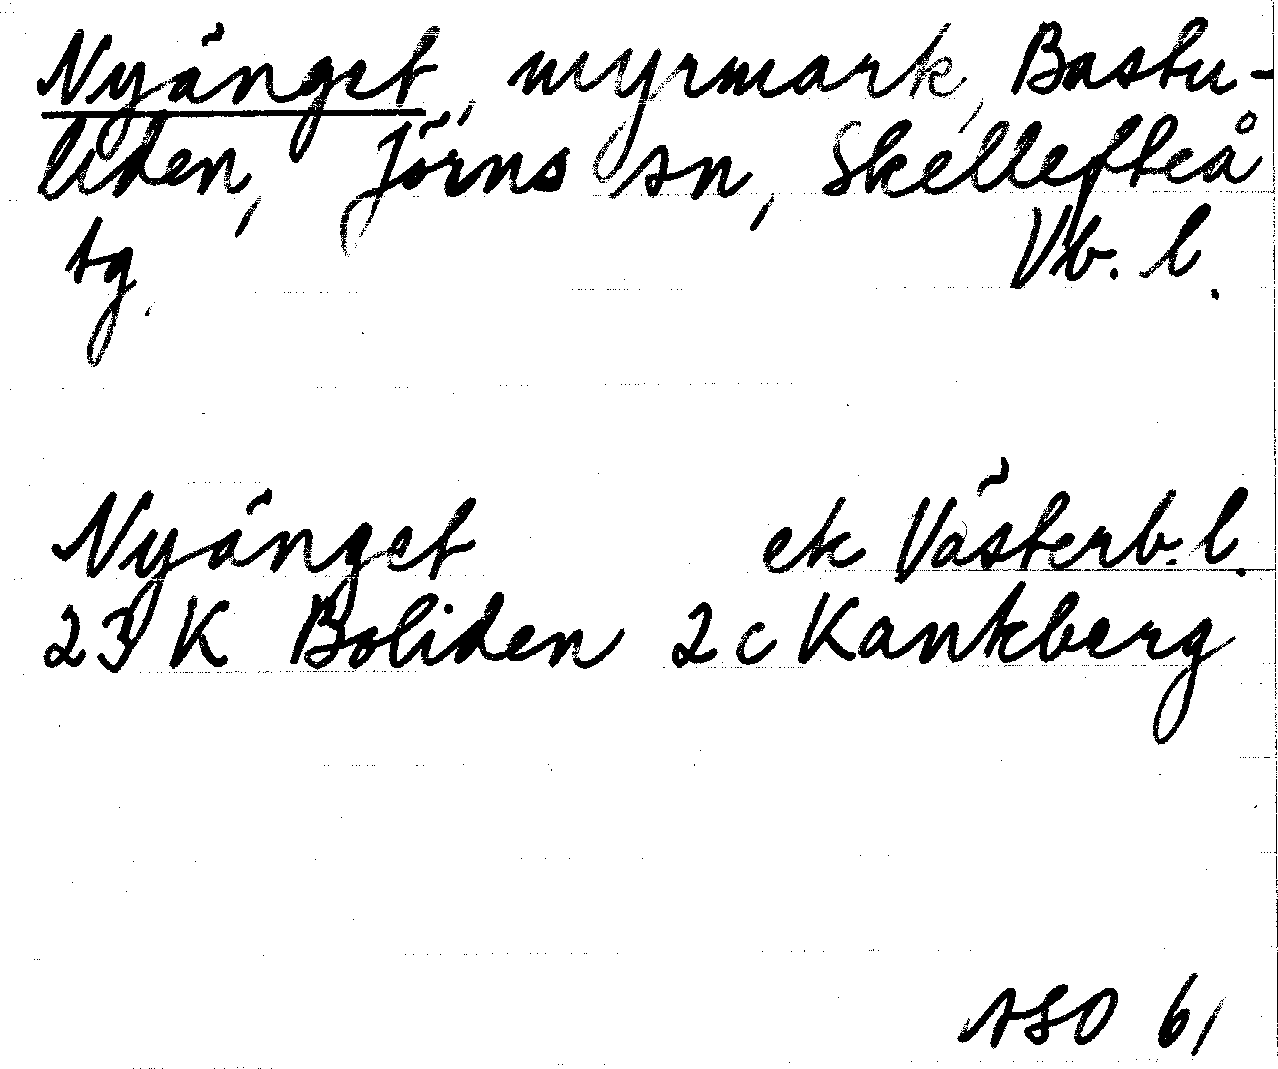 Nyänget, myrmark, Bastu-
liden, Jörns sn, Skellefteå
tg. Vb. l.
Nyänget ek Västerb. l.
23 K Boliden 2 c Kankberg
ASO 61